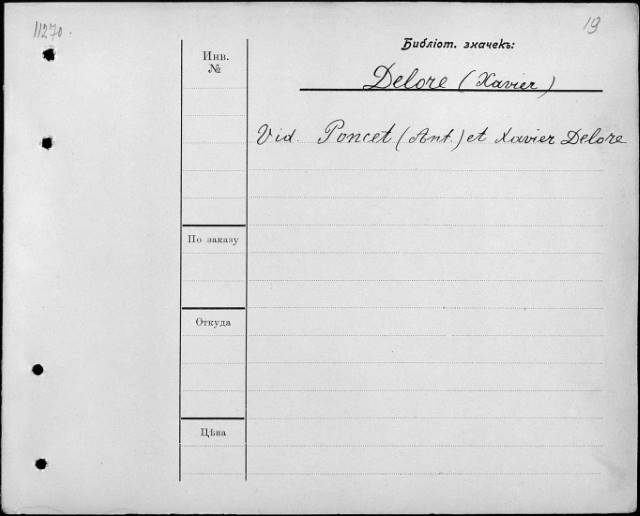 11270.
19
Библіот. значекъ:
Инв.
№
Delore (Xavier)
Vid. Poncet (Ant.) et Xavier Delore
По заказу
Откуда
Цѣна